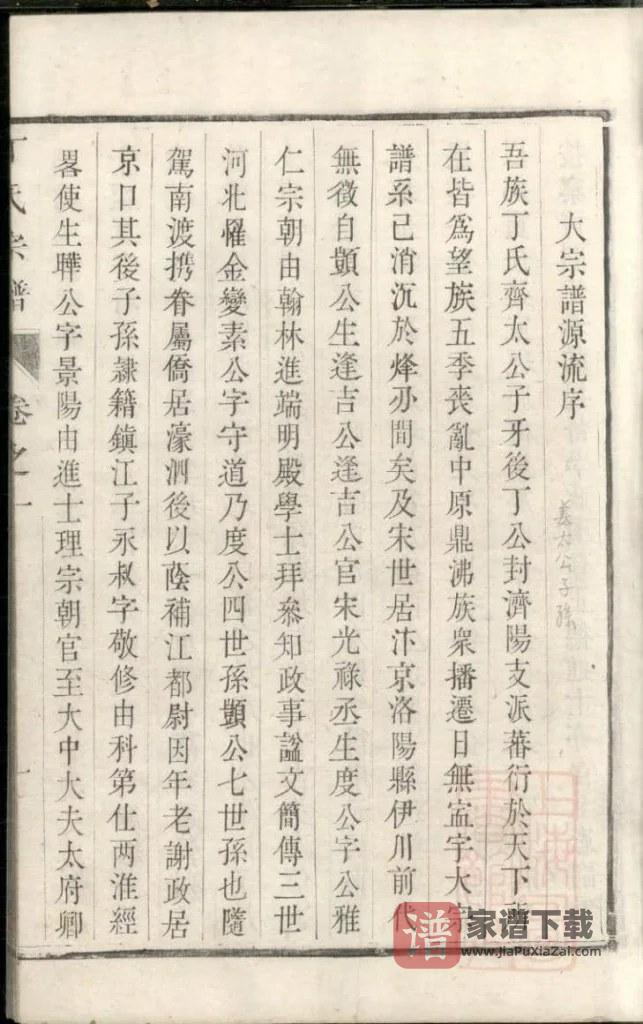 大宗譜源流序
吾族丁氏齊太公子牙後丁公封濟陽支派蕃衍於天下
在皆爲望族五季喪亂中原鼎沸族衆播遷日無寍宇大宗
譜系已消沉於烽刅間矣及宋世居汴京洛陽縣伊川前代
無徵自顗公生逢吉公逢吉公官宋光祿丞生度公字公雅
仁宗朝由翰林進端明殿學士拜叅知政事諡文簡傳三世
河北懼金變素公字守道乃度公四世孫顗公七世孫也隨
駕南渡携眷屬僑居濠泗後以蔭補江都尉因年老謝政居
京口其後子孫隷籍鎭江子永叔字敬修由科第仕两淮經
畧使生曄公字景陽由進士理宗朝官至大中大夫太府卿
氏宗譜 卷之一
一
公子孫
譜 家谱下载
www.JiaPuXiaZai.com